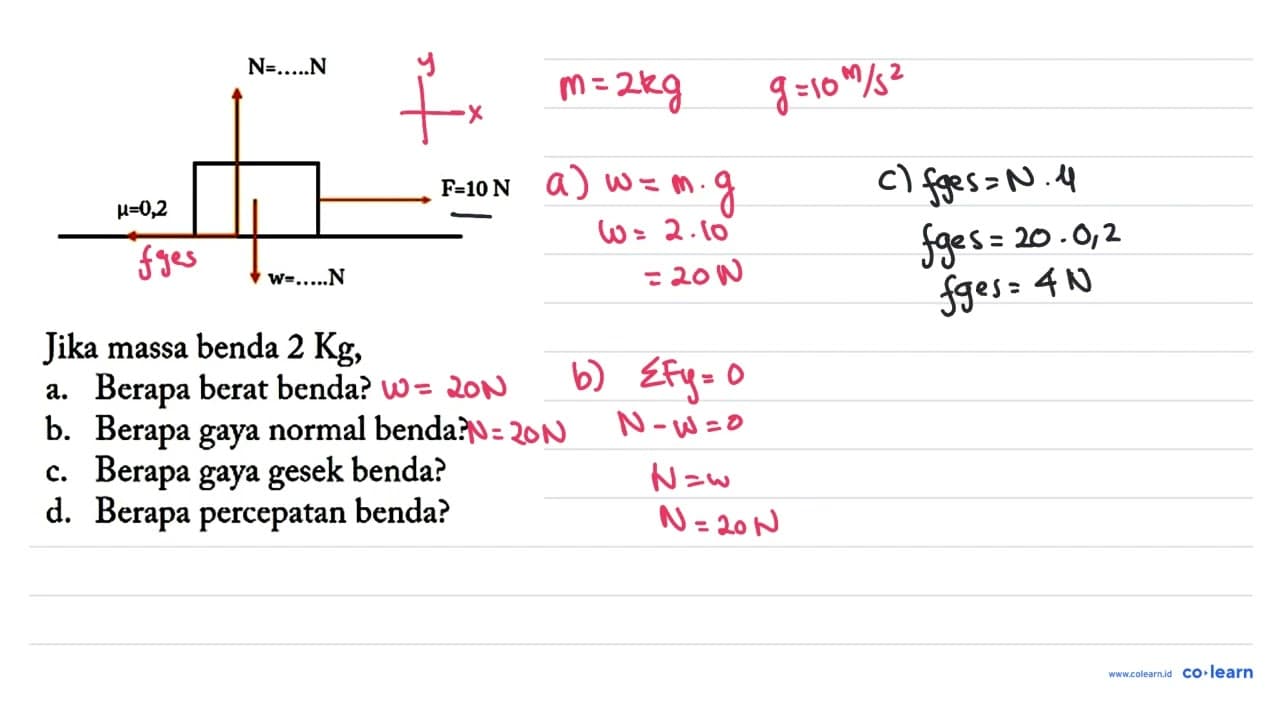 N=.....N
y
x
F=10 N
μ=0,2
fges
w=.....N
Jika massa benda 2 Kg,
a. Berapa berat benda? w = 20N
b. Berapa gaya normal benda? N = 20N
c. Berapa gaya gesek benda?
d. Berapa percepatan benda?
m = 2kg g = 10 m/s²
a) w = m . g
w = 2 . 10
= 20 N
b) ΣFy = 0
N - w = 0
N = w
N = 20 N
c) fges = N . μ
fges = 20 . 0,2
fges = 4 N
www.colearn.id co·learn